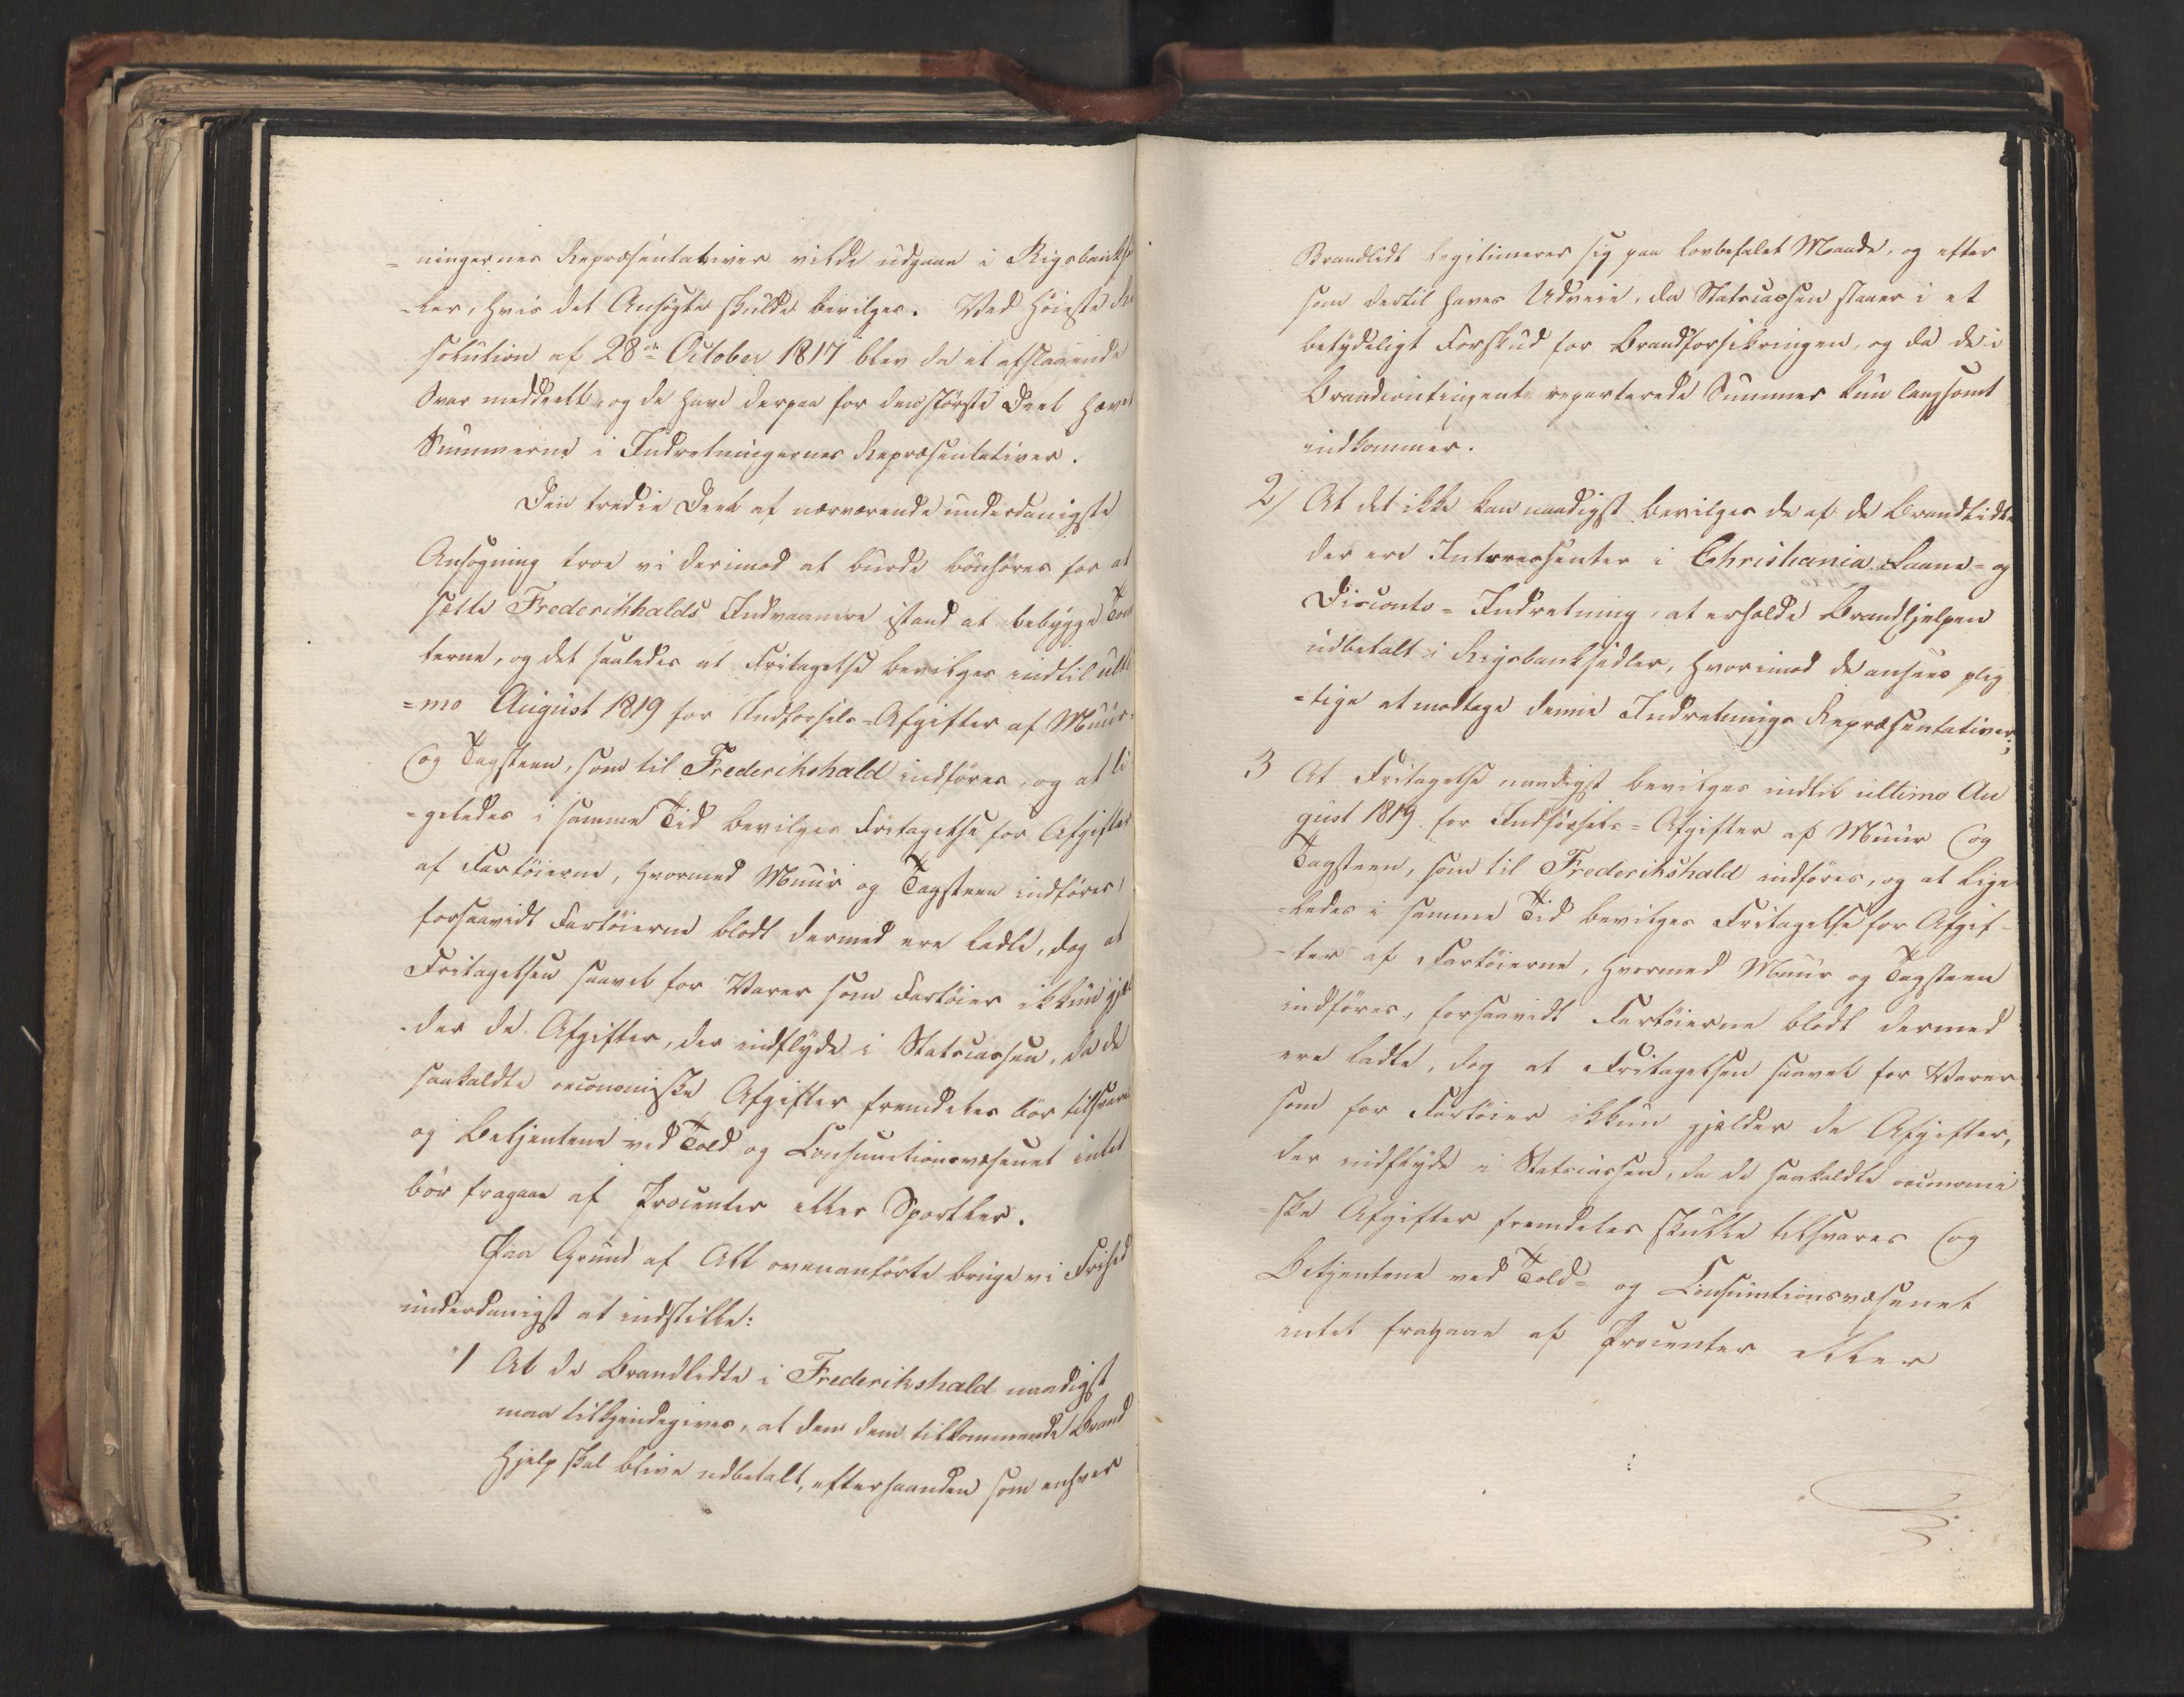 =ningernes Repræsentativer vilde udgaae i Rigsbankse
-ler, hvis det Ansøgte skulde bevilges. Ved Høieste Re
solution af 28de October 1817 blev da et afslaaende
Svar meddeelt, og de have derpaa for den største Deel hævet
Summerne i Indretningernes Repræsentativer.
Den tredie Deel af nærværende underdanigste
Ansøgning troe vi derimod at burde bönhöres for at
sætte Frederikhalds Indvaanere istand at bebygge Tom
terne, og det saaledes at Fritagelse bevilges indtil ulti
=mo August 1819 for Indførsels-Afgifter af Muur-
og Tagsteen, som til Frederikshald indføres, og at li
=geledes i samme Tid bevilges Fritagelse for Afgifter
af Fartöierne, hvormed Muur og Tagsteen indföres,
forsaavidt Fartöierne blodt dermed ere ladte, dog at
Fritagelsen saavel for Varer som Fartöier ikkun gjæl
-der de Afgifter, der indflyde i Statscassen, da de
saakaldte oeconomiske Afgifter fremdeles bör tilsvares
og Betjentene ved Told og Consumtionsvæsenet intet
bör fragaae af Procenter eller Sportler.
Paa Grund af Alt ovenanførte bruge vi Frihed
underdanigst at indstille:
1 At de Brandlidte i Frederikshald naadigst
maa tilkjendegives, at den dem tilkommende Brand
hjelp skal blive udbetalt, efterhaanden som enhver
Brandlidt legitimerer sig paa lovbefalet Maade, og efter
som dertil haves Udveie, da Statscassen staaer i et
betydeligt Forskud for Brandforsikringen, og da de i
Brandcontingent reparterede Summer kun langsomt
indkommer.
2/ At det ikke kan naadigst bevilges de af de Brandlidte
der ere Interessenter i Christiania Laane- og
Disconto-Indretning, at erholde Brandhjelpen
udbetalt i Rigsbanksedler, hvorimod de ansees plig
=tige at modtage denne Indretnings Repræsentativer;
3 At Fritagelse naadigst bevilges indtil ultimo Au
gust 1819 for Indførsels-Afgifter af Muur og
Tagsteen, som til Frederikshald indføres, og at lige
=ledes i samme Tid bevilges Fritagelse for Afgif-
-ter af Fartöierne, hvormed Muur og Tagsteen
indföres, forsaavidt Fartöierne blodt dermed
ere ladte, dog at Fritagelsen saavel for Varer
som for Fartöier ikkun gjelder de Afgifter,
der indflyde i Statscassen, da de saakaldte oeconomi
=ske Afgifter fremdeles skulle tilsvares og
Betjentene ved Told= og Consumtionsvæsenet
intet fragaae af Procenter eller